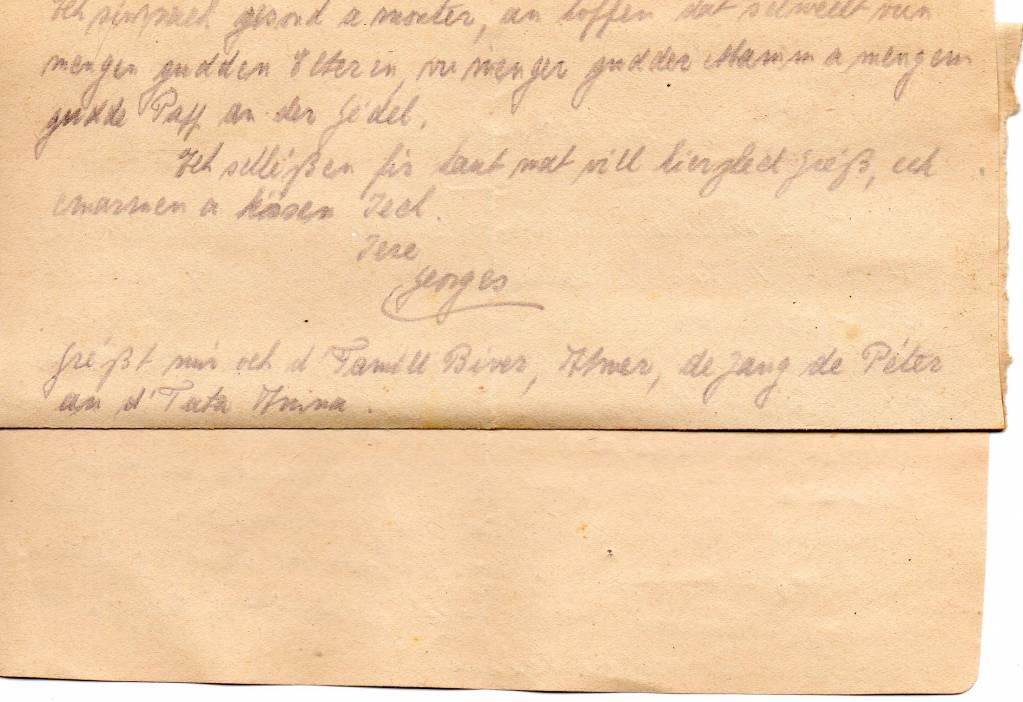 Ech sin nach gesond a monter, an hoffen dat selwecht vun
mengen gudden Elteren, vu menger gudder Mamm a mengem
gudde Papp an der Gëdel.
Ech schléßen fir haut mat vill hierzlech Gréß, ech
emarmen a këssen Iech.
Iere
Georges
Gréßt mir och d'Famill Biver, Elmer, de Jang de Péter
an d'Tata Anna.